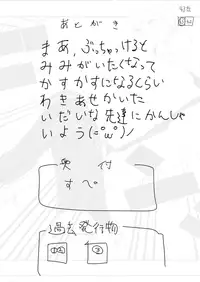 あとがき
まあ、ぶっちゃけると
みみがいたくなって
かすかすになるくらい
わきあせかいた
いだいな先達にかんしゃ
いよう(°ω°)ノ
奥付
すぺ
過去発行物